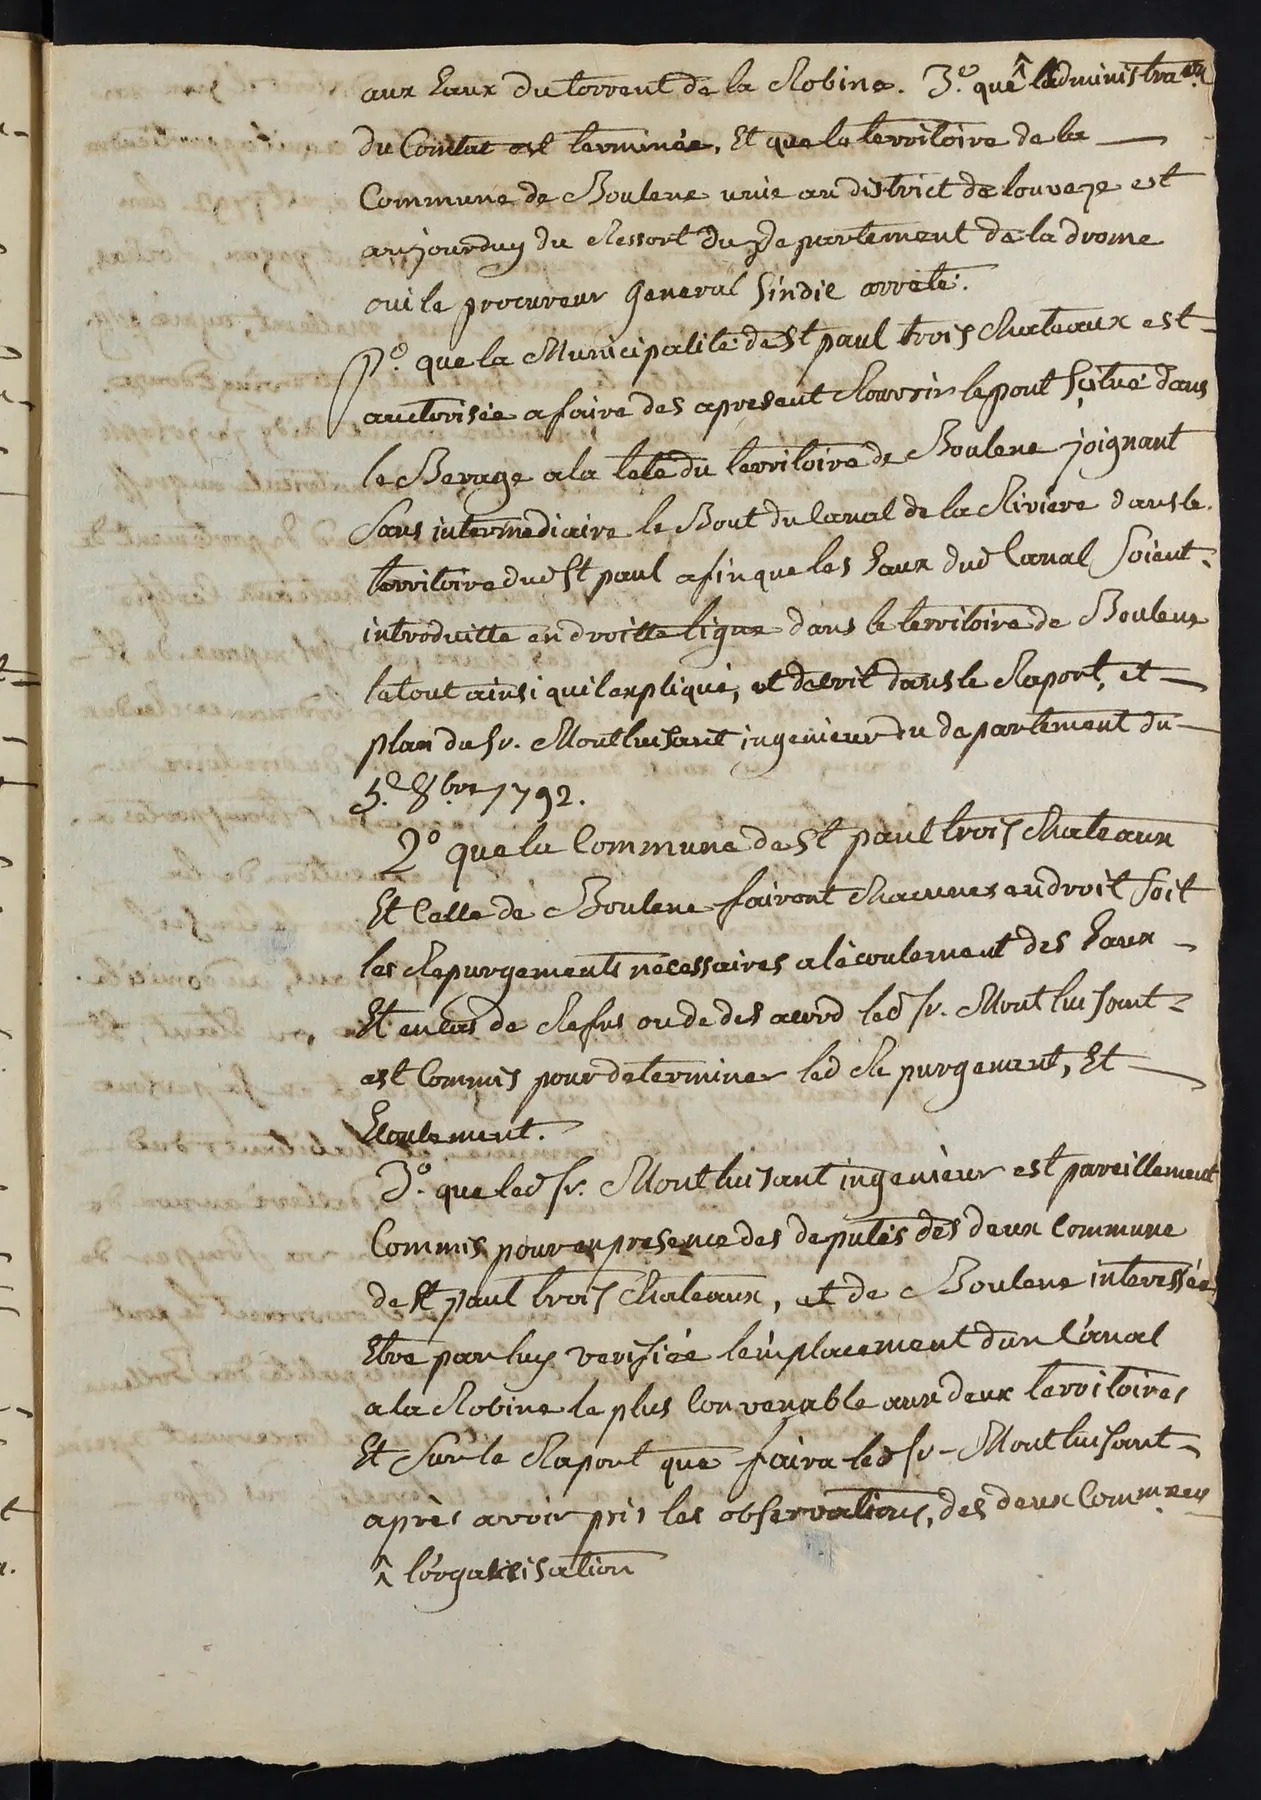 aux Eaux du torrent de la Robine. 3.º que ^ l'administra.on
du Comtat est terminée, Et que le territoire de la
Commune de Boulene unie au district de louveze est
aujourduy du Ressort du departement de la drome
oui le procureur general sindic arrête.
P.º que la Municipalité de St paul trois chateaux est
authorisée a faire des apresent Rouvrir le pont scitué dans
le Berage a la tete du territoire de Boulene joignant
sans intermediaire le Bout du Canal de la Riviere dans le
territoire dud St paul afin que les Eaux dud Canal soient
introduitte en droitte ligne dans le territoire de Boulene
le tout ainsi quil explique, et decrit dans le Raport, et
plan du sr. Montluisant ingenieur du departement du
5.e 8bre 1792.
2º que la Commune de St paul trois chateaux
Et Celle de Boulene fairont chacunes en droit soit
les Repurgements necessaires a lécoulement des Eaux
Et en cas de Refus ou de des acord led sr. Montluisant
est Commis pour determiner led Repurgement, Et
Ecoulement.
3.º que led sr. Montluisant ingenieur est pareillement
Commis pour en presence des deputés des deux Commune
de St paul trois Chateaux, et de Boulene interessée
Etre par luy verifiée lemplacement dun Canal
a la Robine le plus Convenable aux deux territoires
Et Sur le Raport que faira led sr. Montluisant
après avoir pris les observations, des deux Commnes
^ l'organisation